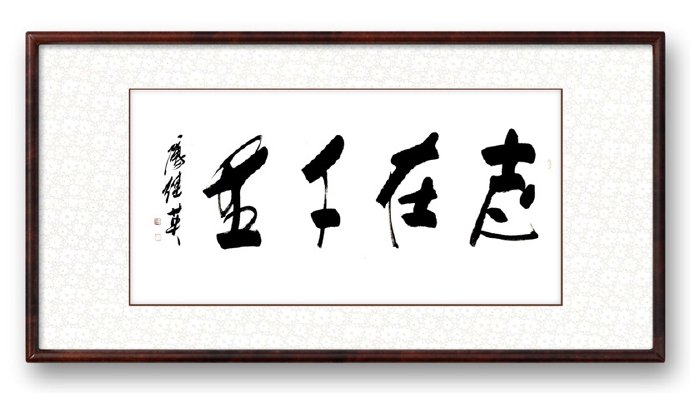 志在千里
英